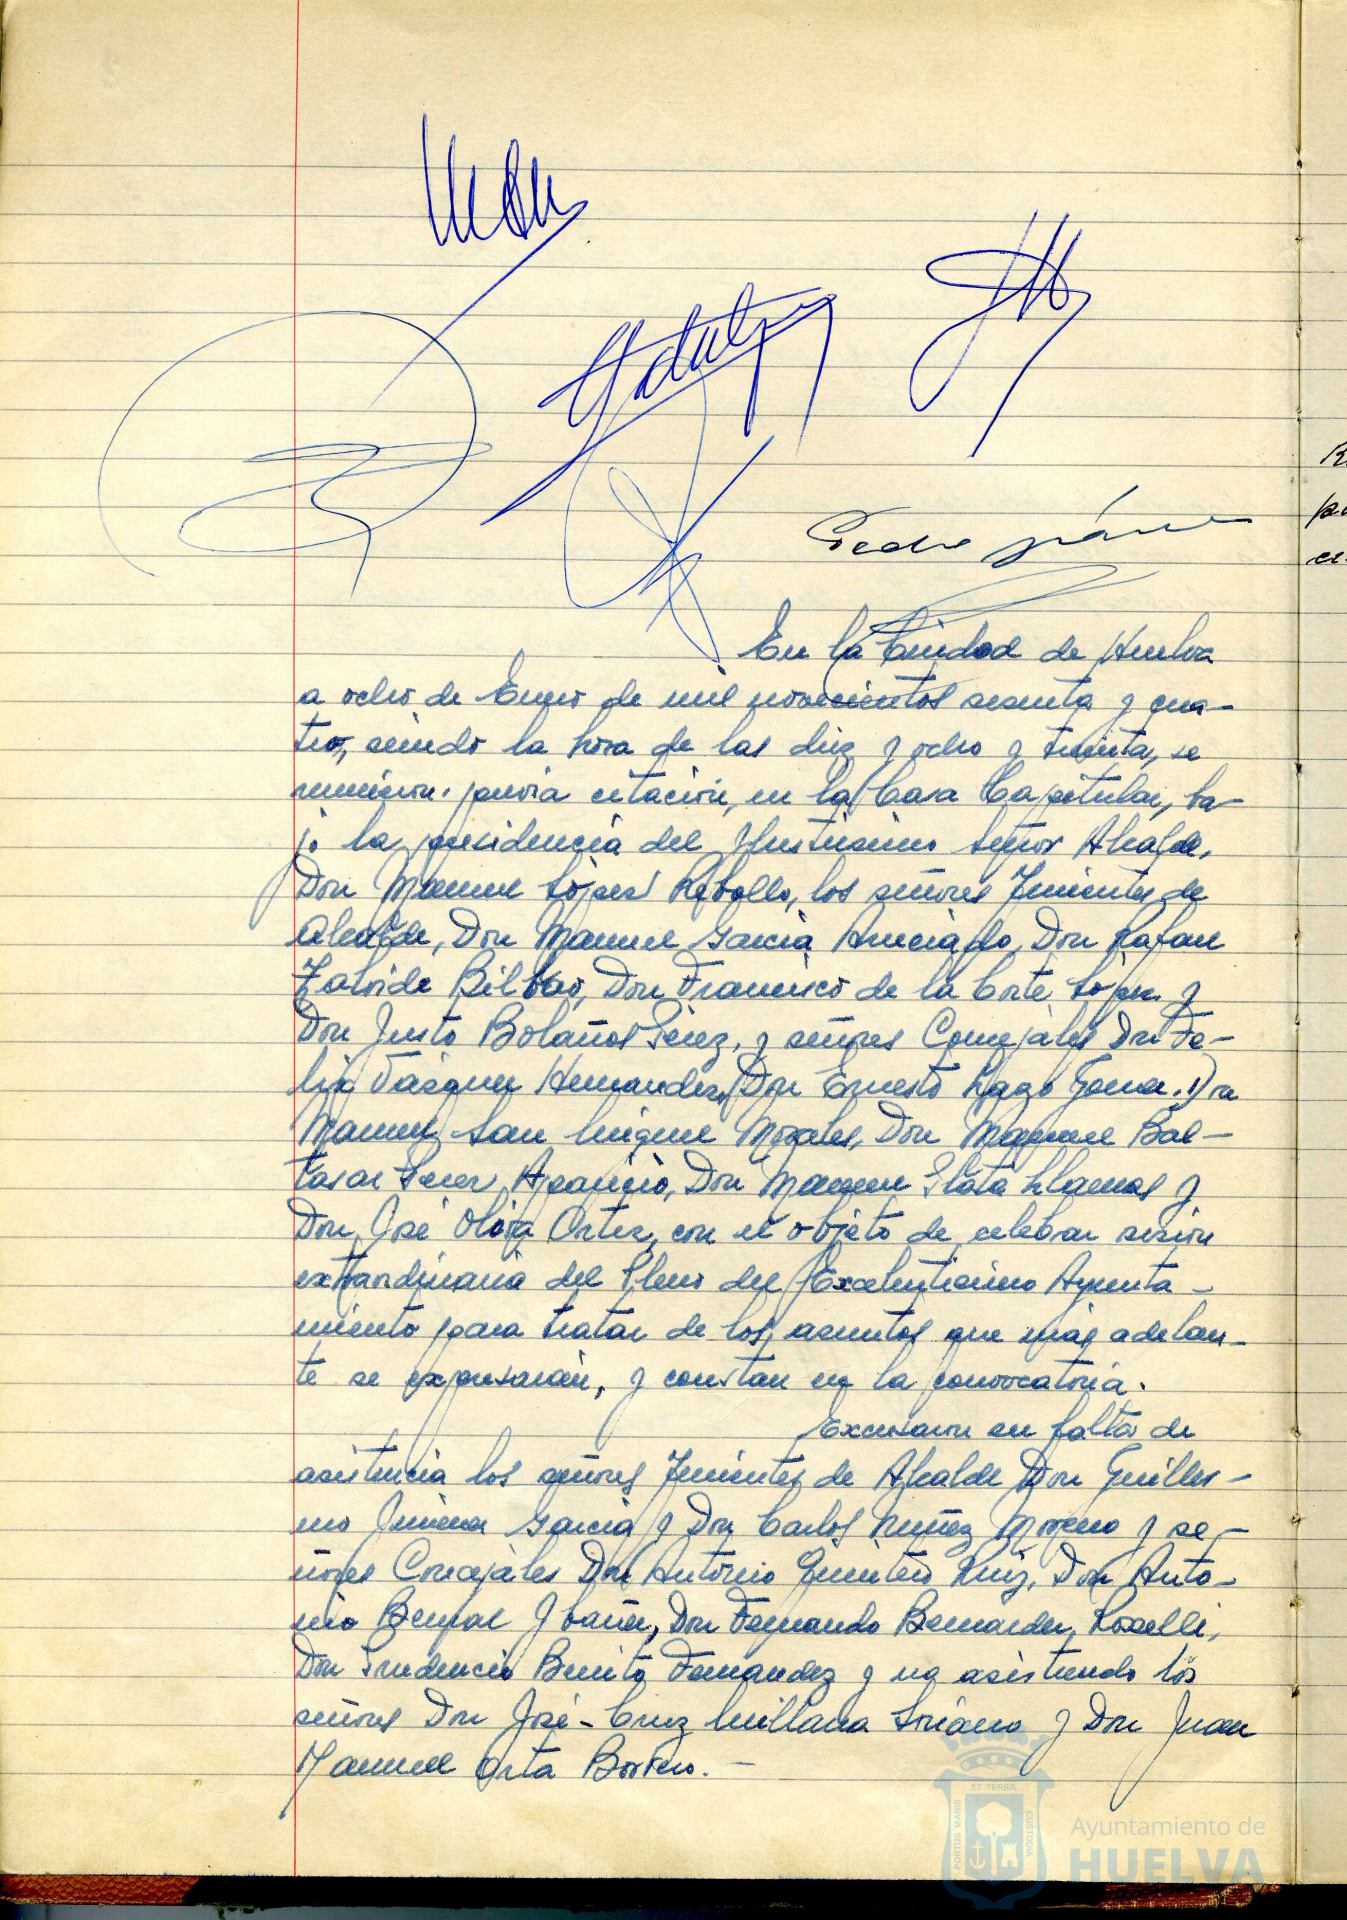 Pedro
En la Ciudad de Huelva
a ocho de Enero de mil novecientos sesenta y cua-
tro, siendo la hora de las diez y ocho y treinta, se
reunieron previa citación, en la Casa Capitular, ba-
jo la presidencia del Ilustrisimo Señor Alcalde,
Don Manuel López Rebollo, los señores Tenientes de
Alcalde, Don Manuel Garcia Don Rafael
Bilbao, Don Francisco de la Corte López y
Don Justo Bolaños Pérez, y señores Concejales Don Fe-
lix Vázquez Hernandez, Don Ernesto Lazo Gomez, Don
Manuel San Miguel Morales, Don Manuel Bal-
tasar Perez Aparicio, Don Manuel Plata Llamas y
Don José Oliva Ortiz, con el objeto de celebrar sesión
extraordinaria del Pleno del Excelentisimo Ayunta-
miento para tratar de los asuntos que más adelan-
te se expresarán, y constan en la convocatoria.
Excusaron su falta de
asistencia los señores Tenientes de Alcalde Don Guiller-
mo Jimenez Garcia y Don Carlos Nuñez Moreno y se-
ñores Concejales Don Antonio Quintero Ruiz, Don Anto-
nio Bernal Ibañez, Don Fernando Bernardez Roselli,
Don Prudencio Benito Fernandez y no asistiendo los
señores Don José-Cruz Quillana Soriano y Don Juan
Manuel Orta Borrero.-
PORTUS MARIS
ET TERRA
CUSTODIA
Ayuntamiento de
HUELVA